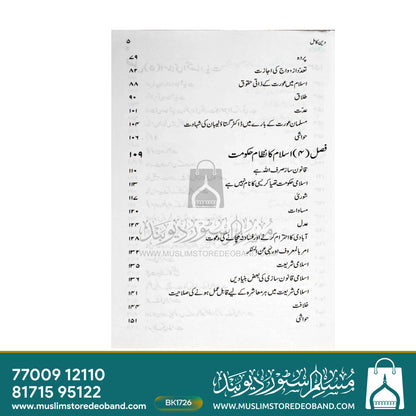 دین کامل ۵
پردہ ۷۹
تعدد ازدواج کی اجازت ۸۲
اسلام میں عورت کے ذاتی حقوق ۸۸
طلاق ۹۰
عدت ۱۰۱
مسلمان عورت کے بارے میں ڈاکٹر گستاؤ لیبان کی شہادت ۱۰۴
حواشی ۱۰۶
فصل (۴) اسلام کا نظام حکومت ۱۰۹
قانون ساز صرف اللہ ہے ۱۱۰
اسلامی حکومت تھیا کریسی کا نام نہیں ہے ۱۱۳
شوریٰ ۱۱۷
مساوات ۱۲۰
عدل ۱۲۴
آبادی کا احترام کرنے اور فساد نہ مچانے کی دعوت ۱۲۸
امر بالمعروف اور نہی عن المنکر ۱۳۲
اسلامی شریعت ۱۳۵
اسلامی قانون سازی کی بعض بنیادیں ۱۳۶
اسلامی شریعت میں ہر معاشرہ کے لیے قابل عمل ہونے کی صلاحیت ۱۴۱
خلافت ۱۴۴
حواشی ۱۵۱
مسلم سٹور دیوبند
WWW.MUSLIMSTOREDEOBAND.COM
77009 12110
81715 95122
BK1726
www.muslimstoredeoband.com
مسلم سٹور دیوبند
WWW.MUSLIMSTOREDEOBAND.COM